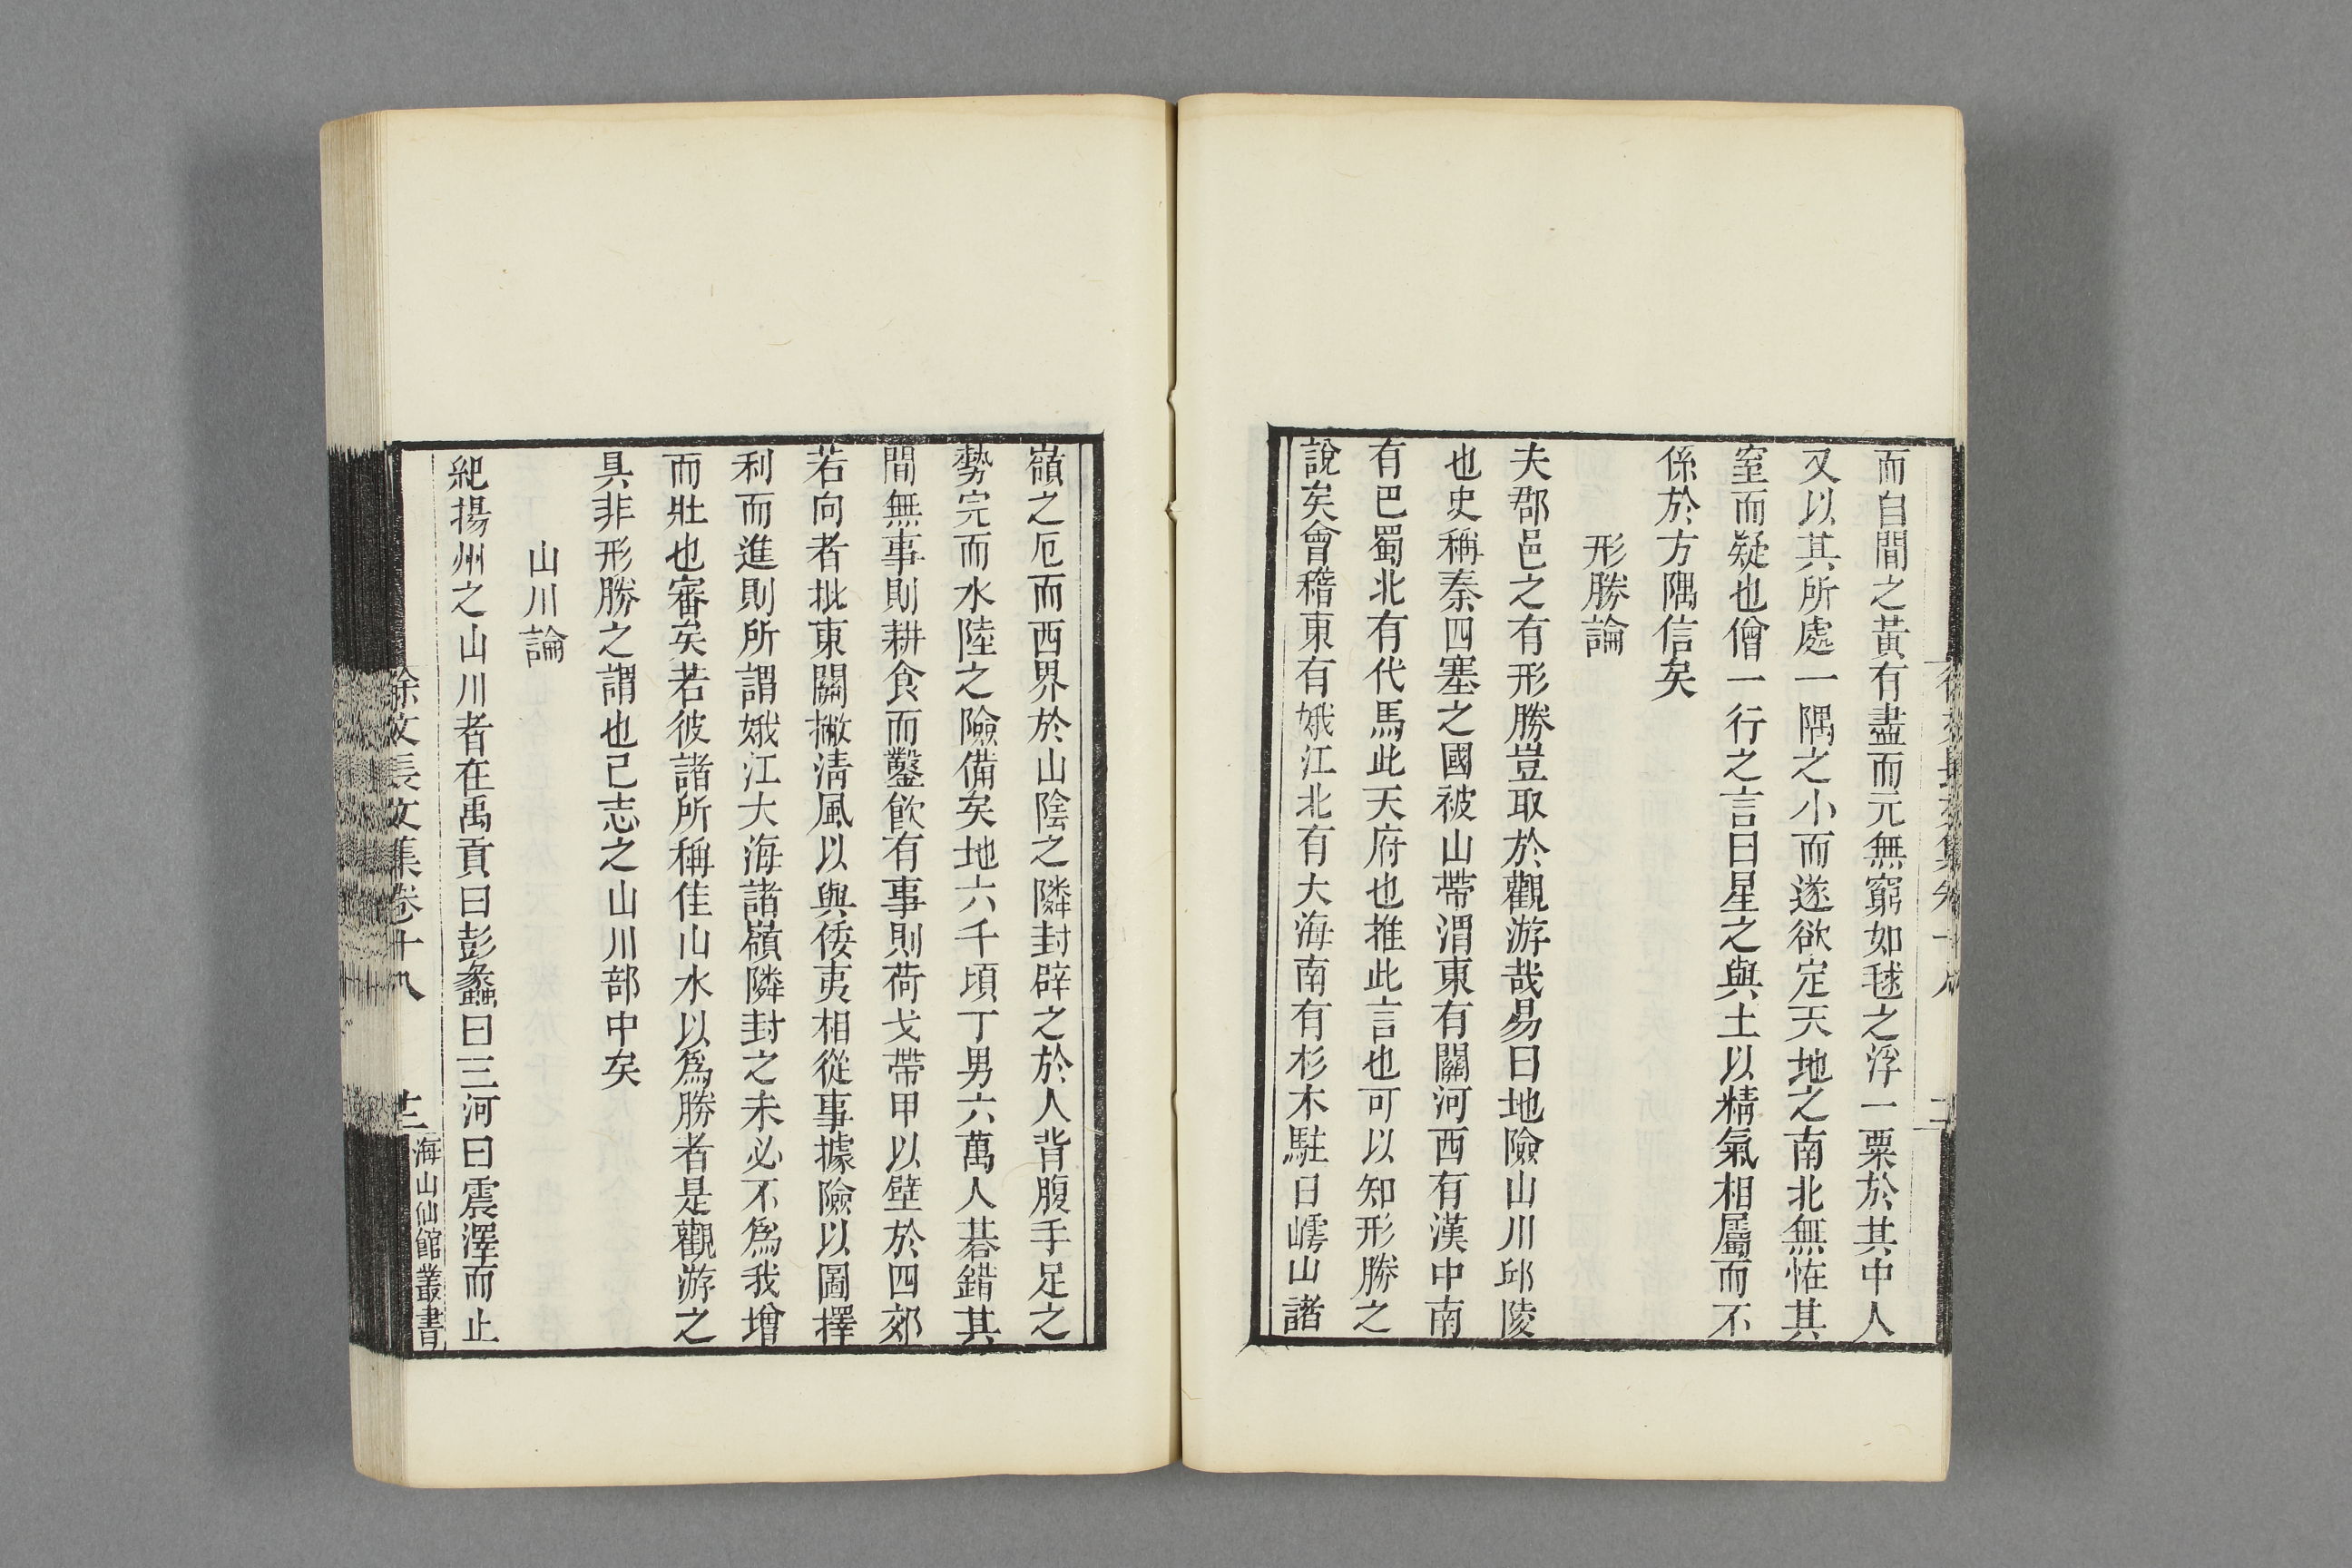 而自間之黃有盡而元無窮如毬之浮一粟於其中人
又以其所處一隅之小而遂欲定天地之南北無恠其
窒而疑也僧一行之言曰星之與土以精氣相屬而不
係於方隅信矣
形勝論
夫郡邑之有形勝豈取於觀游哉易曰地險山川邱陵
也史稱秦四塞之國被山帶渭東有關河西有漢中南
有巴蜀北有代馬此天府也推此言也可以知形勝之
說矣會稽東有娥江北有大海南有杉木駐日嶀山諸
嶺之厄而西界於山陰之隣封辟之於人背腹手足之
勢完而水陸之險備矣地六千頃丁男六萬人碁錯其
間無事則耕食而鑿飲有事則荷戈帶甲以壁於四郊
若向者批東關撇清風以與倭夷相從事據險以圖擇
利而進則所謂娥江大海諸嶺隣封之未必不爲我增
而壯也審矣若彼諸所稱佳山水以爲勝者是觀游之
具非形勝之謂也已志之山川部中矣
山川論
紀揚州之山川者在禹貢曰彭蠡曰三河曰震澤而止
徐文長文集卷十八
海山仙館叢書